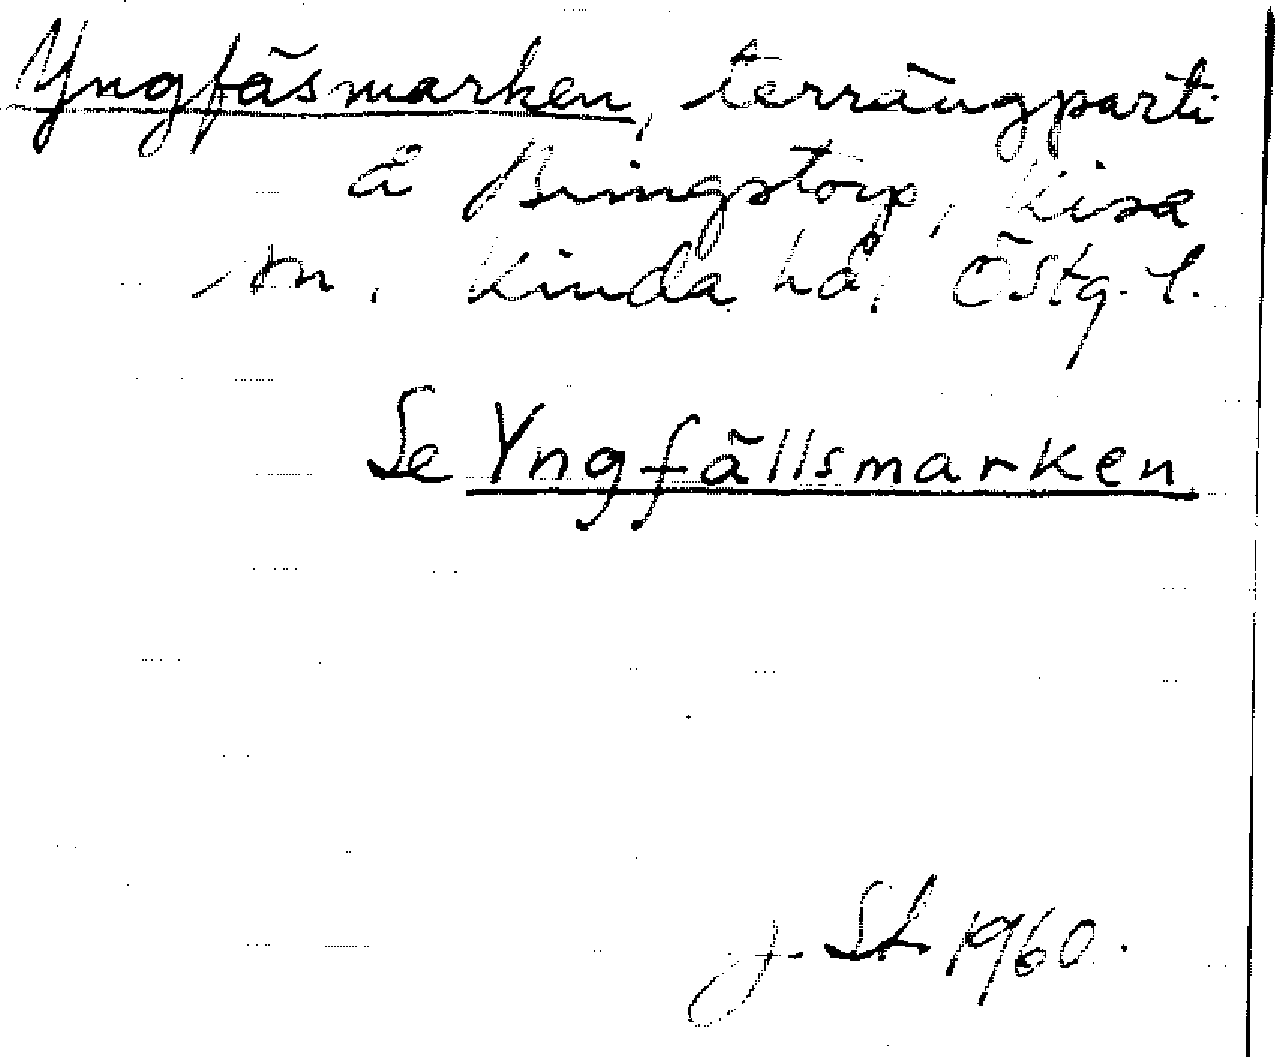 Yngfäsmarken, terrängparti
å Bringstorp, Kisa
sn. Kinda hd, Östg. l.
Se Yngfällsmarken
J. Sh 1960.